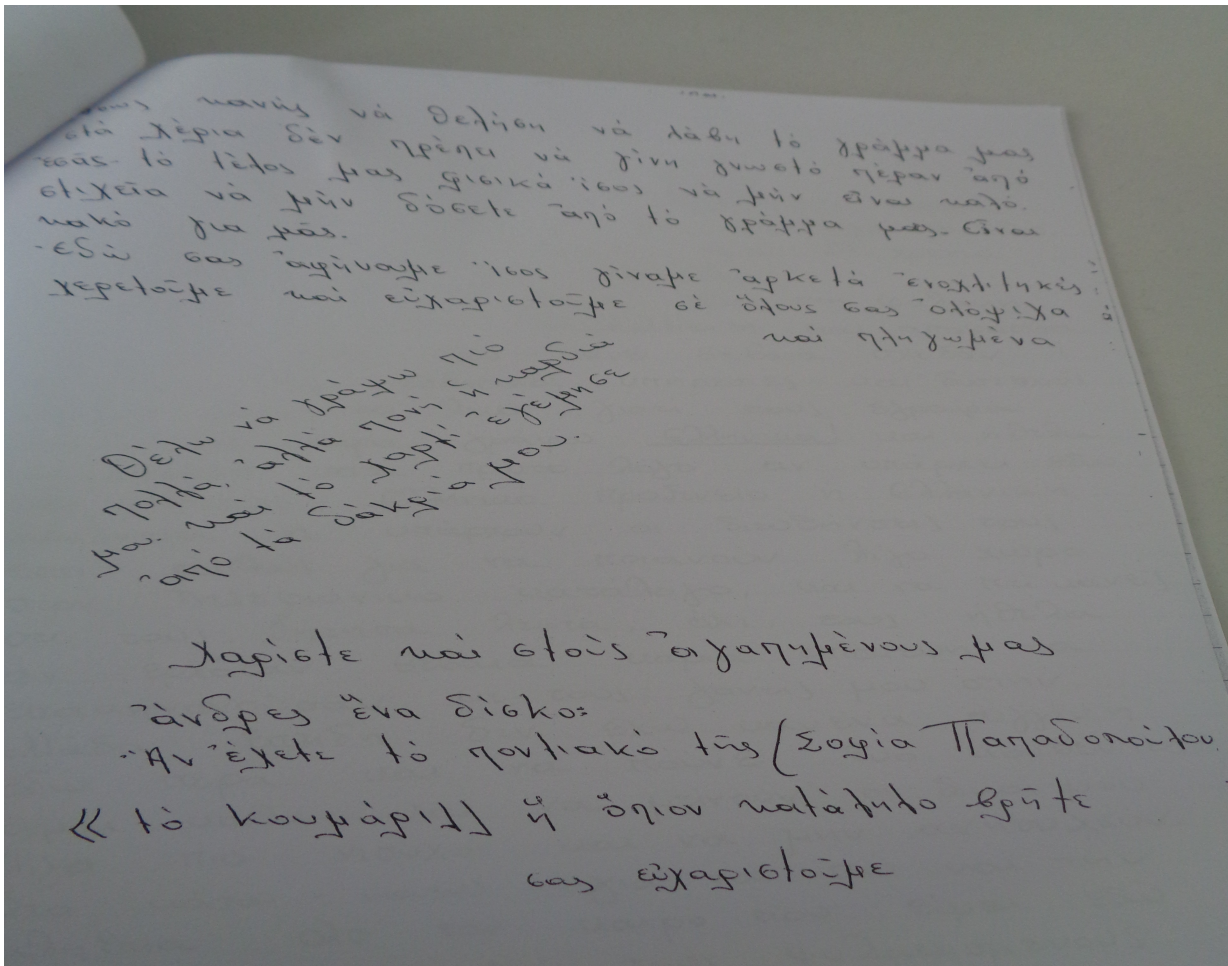 κανής νά θελήση νά λάβη τό γράμμα μας
στά χέρια δέν πρέπει νά γίνη γνωστό πέραν ἀπό
ἐσᾶς. τό τέλος μας φισικά ἴσος νά μήν εἶναι καλό.
στιχεῖα νά μήν δόσετε ἀπό τό γράμμα μας. εἶναι
κακό για μᾶς.
ἐδώ σας ἀφήνουμε ἴσος γίναμε ἀρκετά ἐνοχλιτηκές
χερετοῦμε καί εὐχαριστοῦμε σέ ὅλους σας ὁλόψιχα
καί πληγωμένα
Θέλω νά γράψω πιό
πολλά, ἀλλά πονῆ ἡ καρδιά
μου. καί τό χαρτί ἐγέμησε
ἀπό τά δάκρια μου.
Χαρίστε καί στούς ἀγαπημένους μας
ἄνδρες ἕνα δίσκο:
Ἄν ἔχετε τό ποντιακό τῆς (Σοφία Παπαδοπούλου
« τό κουμάρι» ἤ ὅπιον κατάληλο βρῆτε
σας εὐχαριστοῦμε